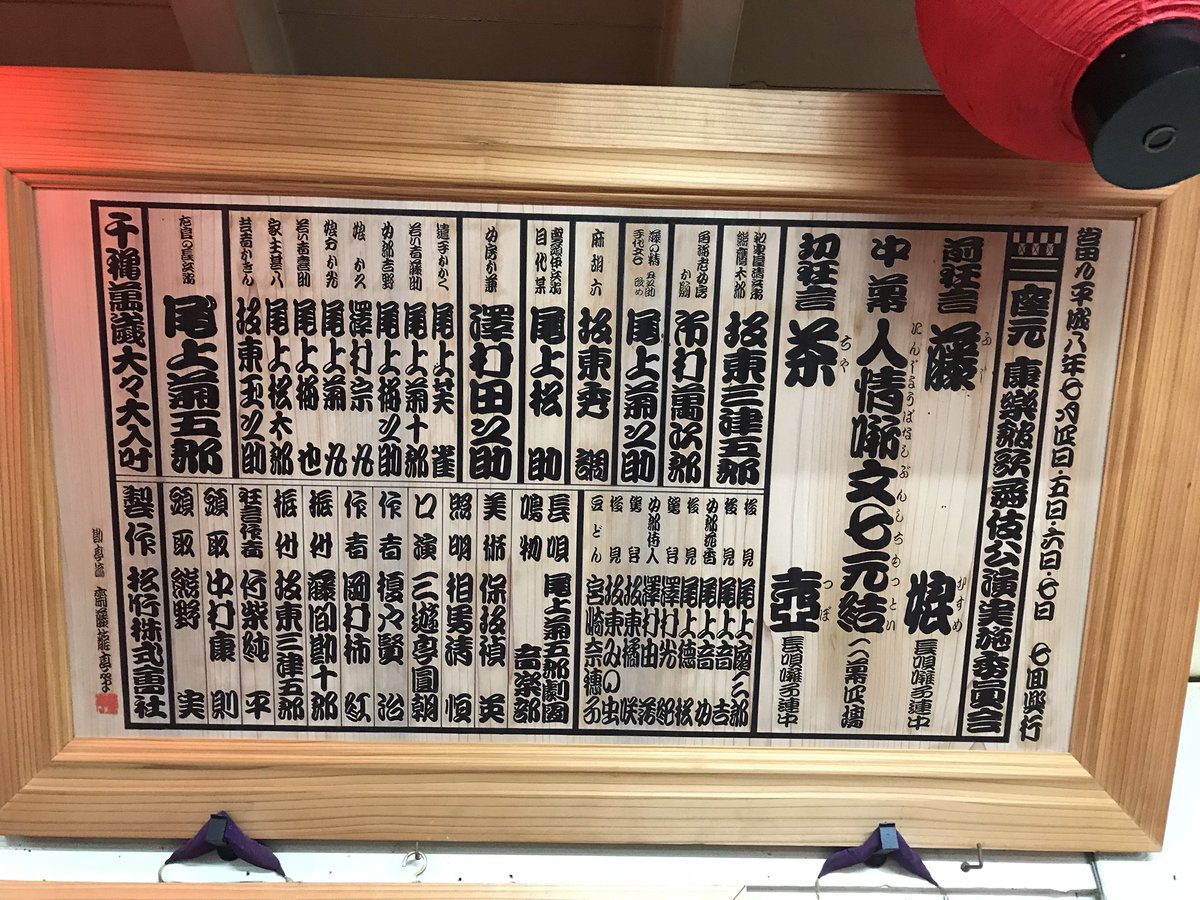 当る平成八年七月四日・五日・六日・七日 七回興行
座元 康楽館歌舞伎公演実施委員会
前狂言 藤娘 長唄囃子連中
ふじ むすめ
中幕 人情噺文七元結 二幕四場
にんじょうばなしぶんしちもっとい
切狂言 茶壺 長唄囃子連中
ちゃ つぼ
和泉屋清兵衛
熊鷹太郎
坂東三津五郎
角海老女房
お駒
市村萬次郎
藤の精 丑之助
手代文七 改め
尾上菊之助
麻胡六 坂東秀調
鳶頭伊兵衛
目代某
尾上松助
女房お兼 澤村田之助
遣手おかく 尾上芙雀
若い者藤助 尾上菊十郎
女郎吉野 尾上梅之助
娘お久 澤村宗丸
娘分お光 尾上菊丸
若い者喜助 尾上梅也
家主甚八 尾上松太郎
芸者おきん 坂東玉之助
左官の長兵衛 尾上菊五郎
千穐萬歳大々大入叶
後見 尾上扇
尾上音吉
尾上音女
後見 尾上徳松
駕舁 澤村光紀
澤村由蔵
駕舁 坂東橘咲
後見 坂東みの虫
豆どん 宮崎奈穂子
長唄
鳴物
尾上菊五郎劇団
音楽部
美術 保坂禎英
照明 相馬清恒
口演 三遊亭圓朝
作者 榎戸賢治
作者 岡村柿紅
振付 藤間勘十郎
振付 坂東三津五郎
狂言作者 竹柴純平
頭取 中村康則
頭取 熊野実
製作 松竹株式會社
勘亭流